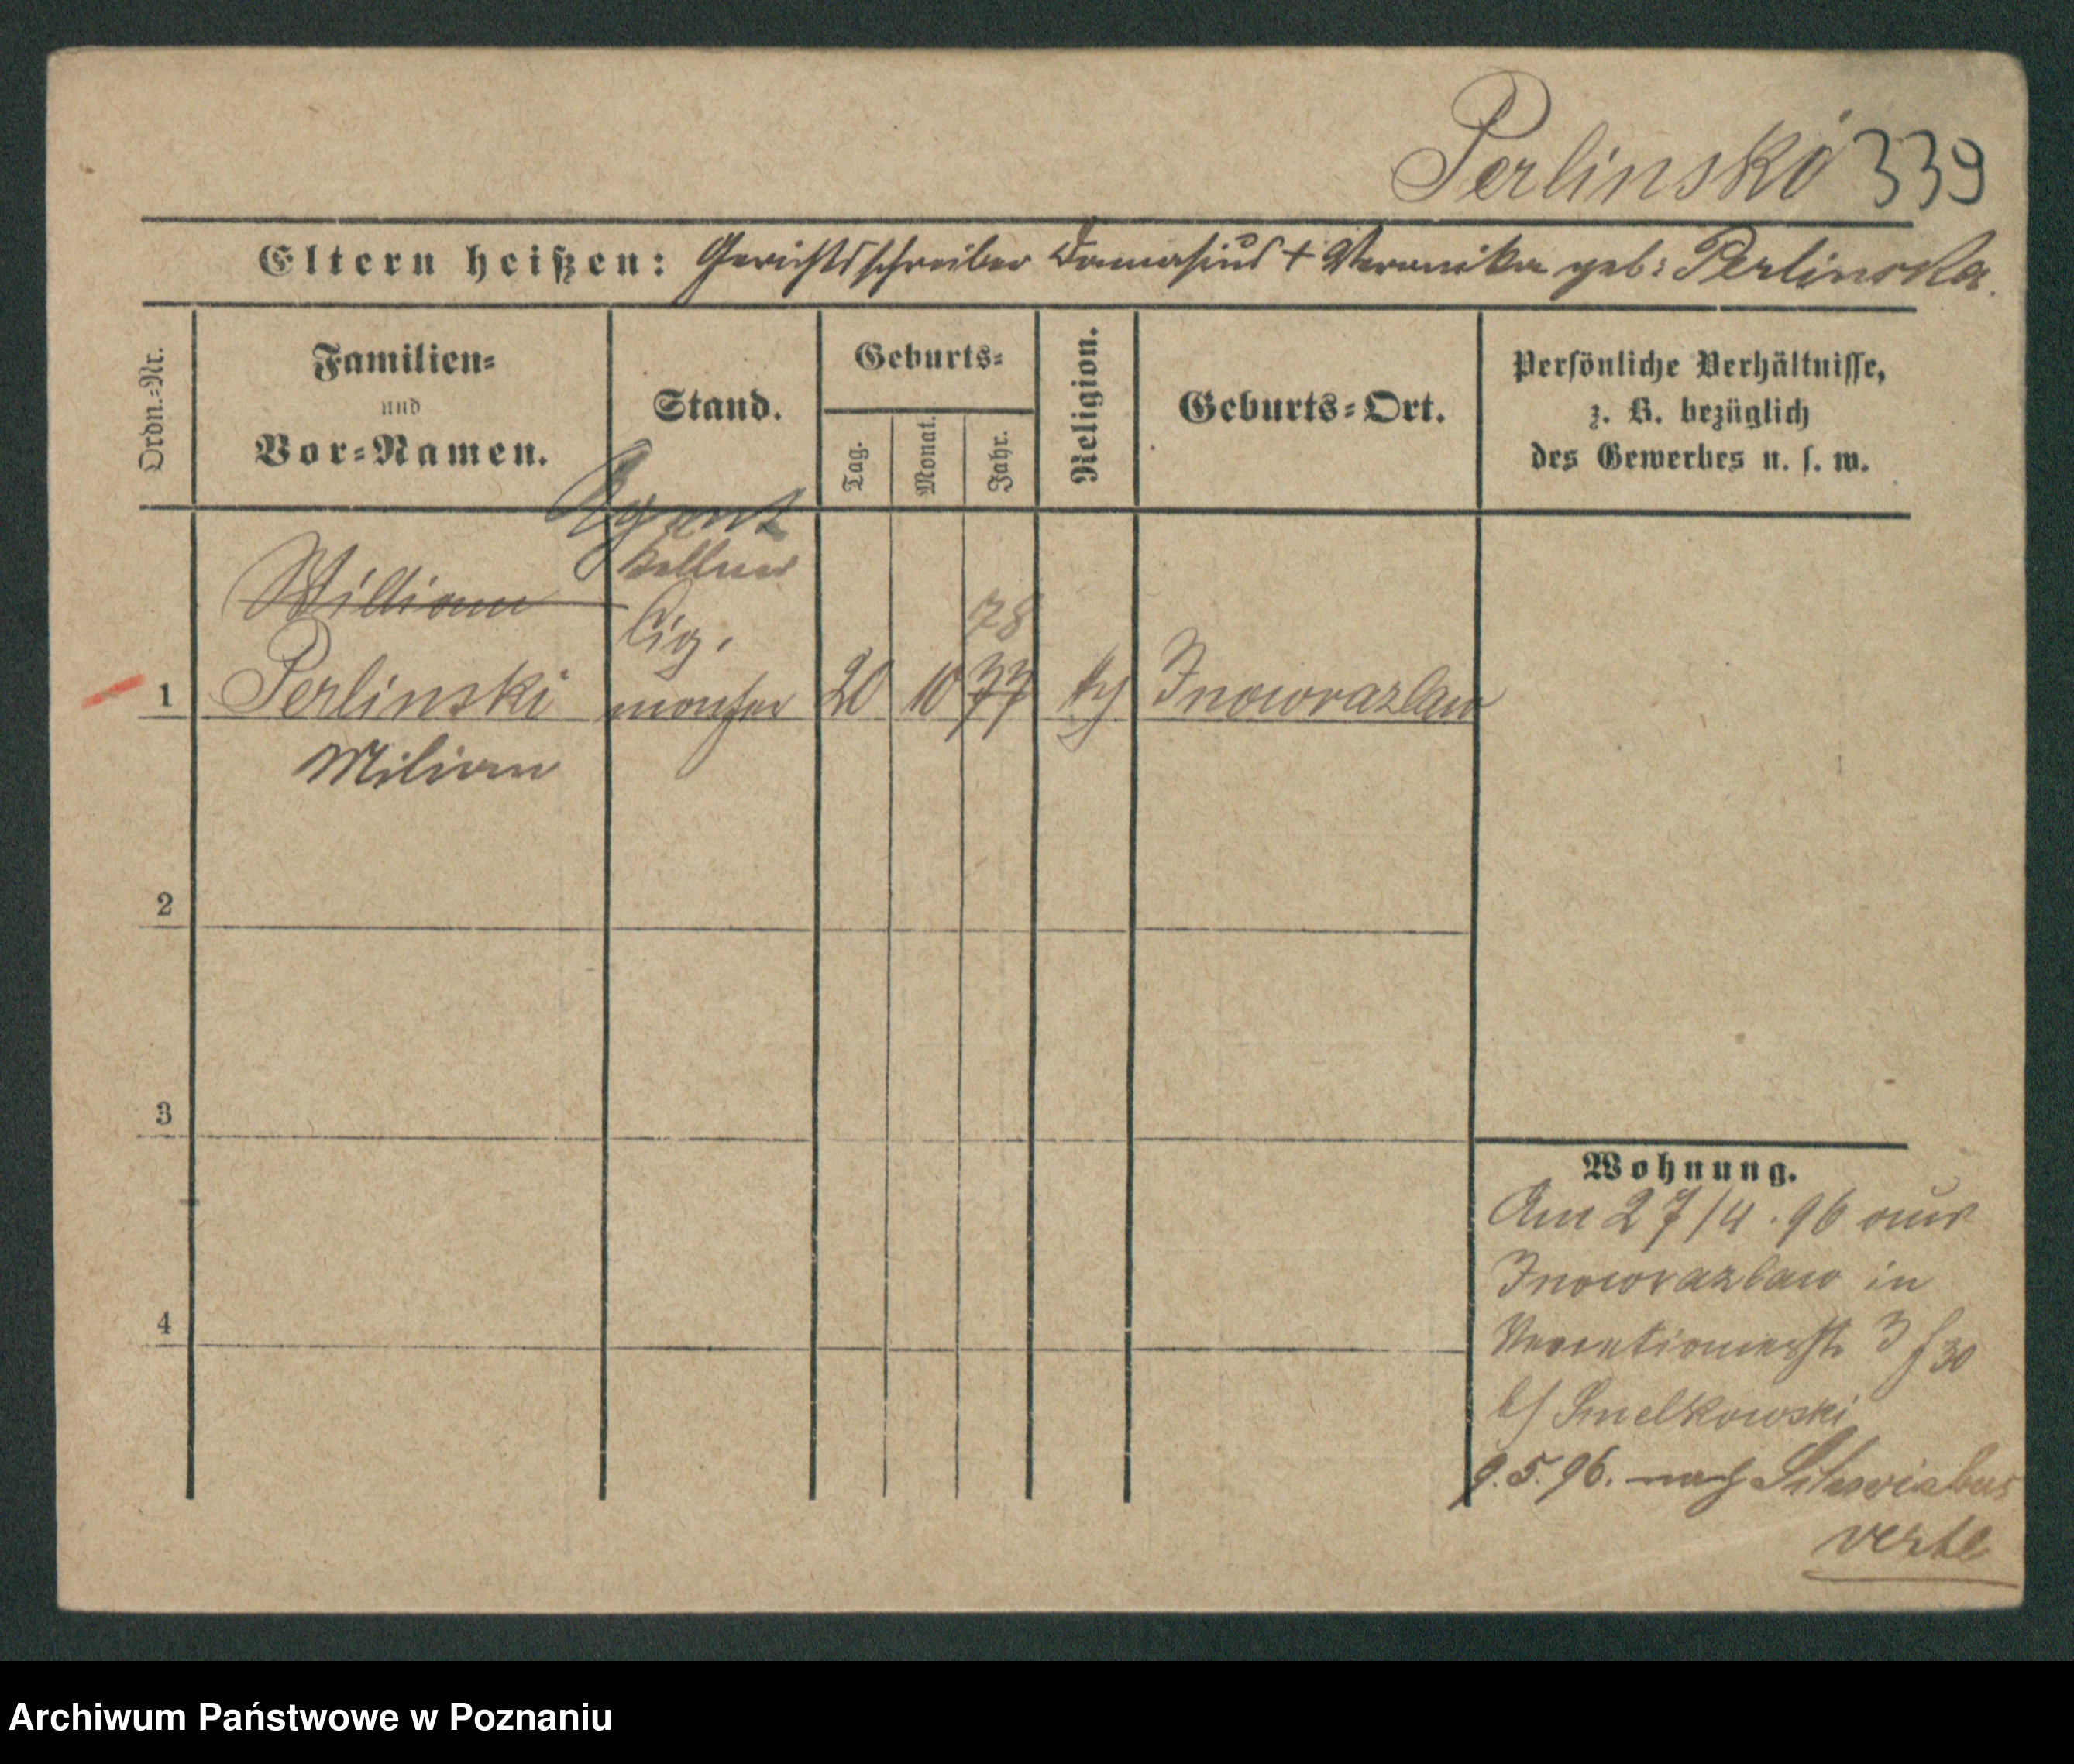 Perlinski 339
Eltern heißen: Gerichtsschreiber Damasius + Veronika geb: Perlinska.
Ordn.=Nr.
Familien=
und
Vor=Namen.
Stand.
Geburts=
Tag.
Monat.
Jahr.
Religion.
Geburts=Ort.
Persönliche Verhältnisse,
z. B. bezüglich
des Gewerbes u. s. w.
Agent
Kellner
Cig.
78
1 Perlinski macher 20 10 77 Inowrazlaw
Milian
2
3
4
Wohnung.
Am 27/4. 96 aus
Inowrazlaw in
3 f 30
b/ Smelkowski
9.5.96. nach Schwiebus